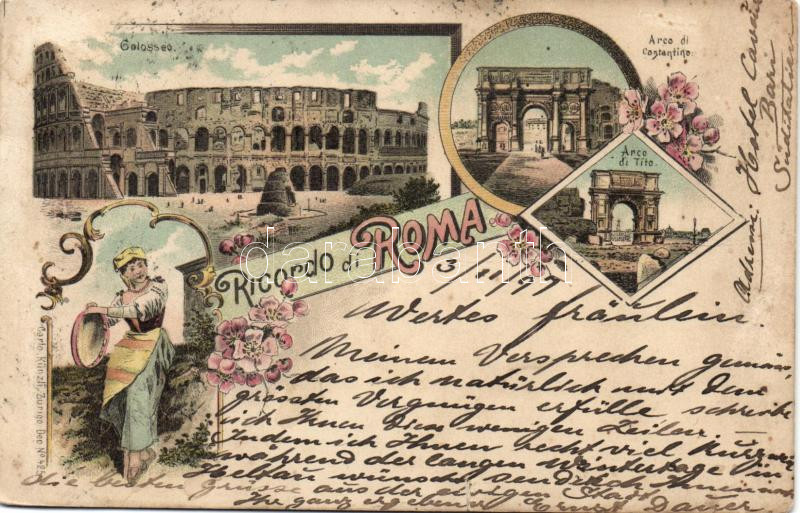 Colosseo.
Arco di
Costantino.
Arco
di Tito.
Ricordo di ROMA
darabanth.com
Adresse: Hotel Cavour
Bari
Süditalien
3/1 99
Wertes Fräulein.
Meinem Versprechen gemäss
das ich natürlich mit dem
grössten Vergnügen erfülle schreibe
ich Ihnen diese wenigen Zeilen.
Indem ich Ihnen recht viel Kurzweil
während der langen Wintertage in
wünsche sende ich Ihnen
die besten Grüsse aus der ewigen Stadt
Ihr ganz ergebener Ernst Dauer
Carlo Künzli, Zurigo Dep. No 421